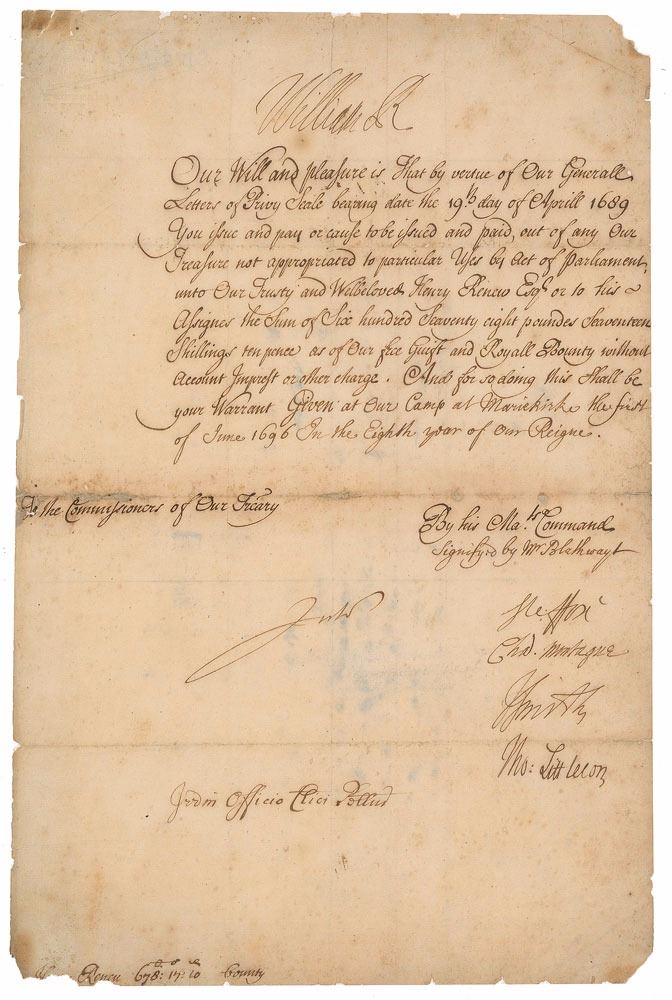 William R
Our Will and pleasure is That by vertue of Our Generall
Letters of Privy Seale bearing date the 19th day of Aprill 1689
You issue and pay or cause to be issued and paid, out of any Our
Treasure not appropriated to particular Uses by Act of Parliament,
unto Our Trusty and Welbeloved Henry Renew Esqr or to his
Assignes the Sum of Six hundred Seaventy eight poundes Seaventeen
Shillings ten pence as of Our free Guift and Royall Bounty without
Account Imprest or other charge. And for so doing this Shall be
your Warrant Given at Our Camp at Mariekirke the first
of June 1696 In the Eighth year of Our Reigne.
To the Commissioners of Our Treãry
By his Mats Command
Signifyed by Mr Blathwayt
Ste ffox
Cha. Montague
JSmith
Tho: Littleton
Irrãn Officio Clici Pellium
Renew 678: 17: 10 bounty